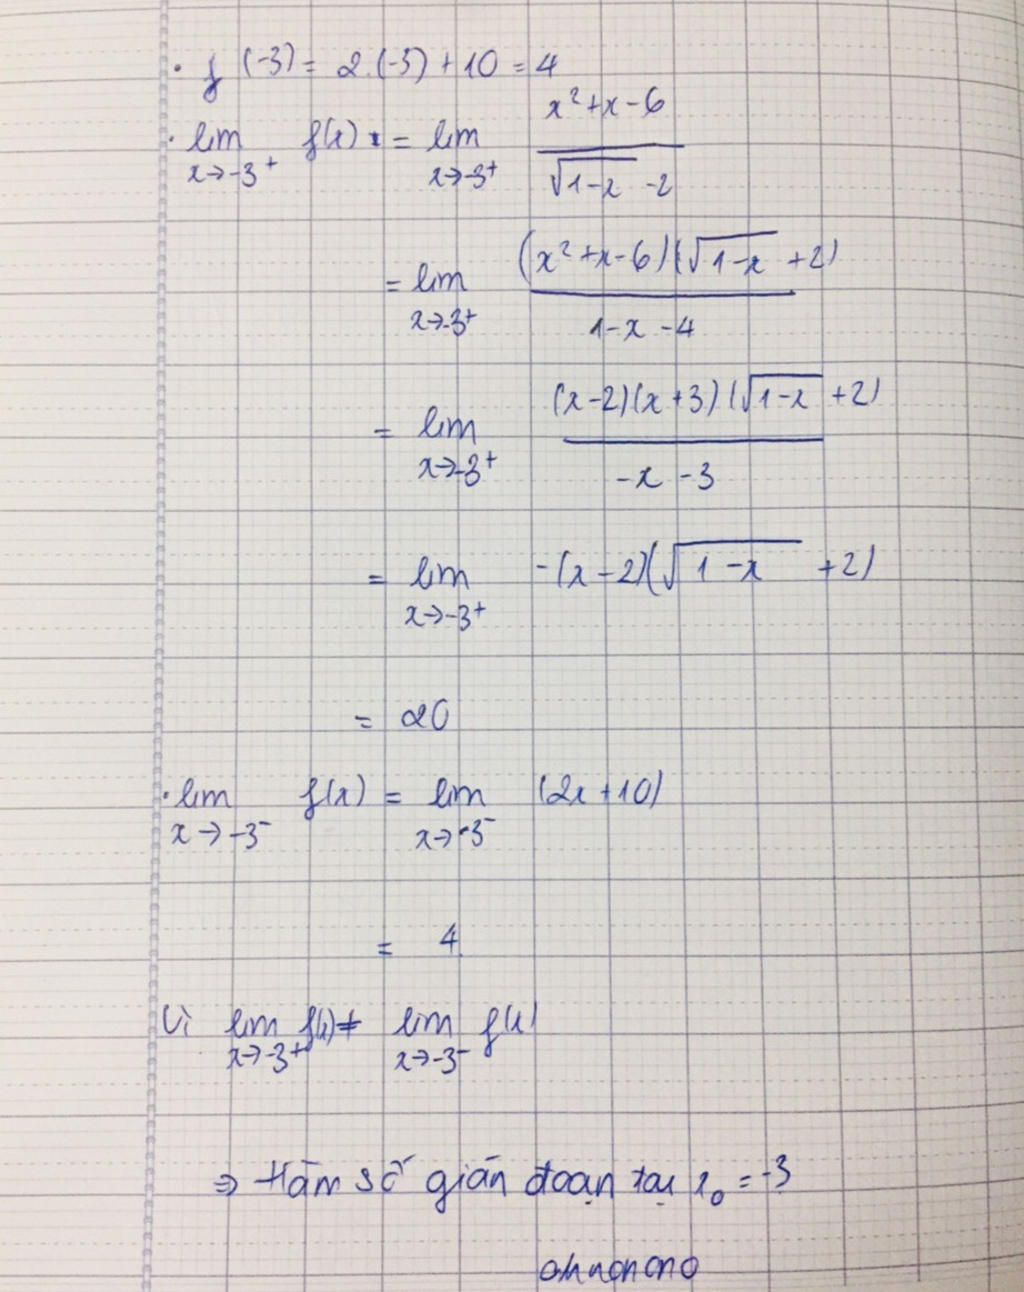 . f(-3) = 2.(-3) + 10 = 4
. lim x→-3⁺ f(x) = lim x→-3⁺ (x² + x - 6) / (√(1-x) - 2)
= lim x→-3⁺ (x² + x - 6)(√(1-x) + 2) / (1 - x - 4)
= lim x→-3⁺ (x-2)(x+3)(√(1-x) + 2) / (-x - 3)
= lim x→-3⁺ -(x-2)(√(1-x) + 2)
= 20
. lim x→-3⁻ f(x) = lim x→-3⁻ (2x + 10)
= 4
Vì lim x→-3⁺ f(x) ≠ lim x→-3⁻ f(x)
⇒ Hàm số gián đoạn tại x₀ = -3
ohnonono